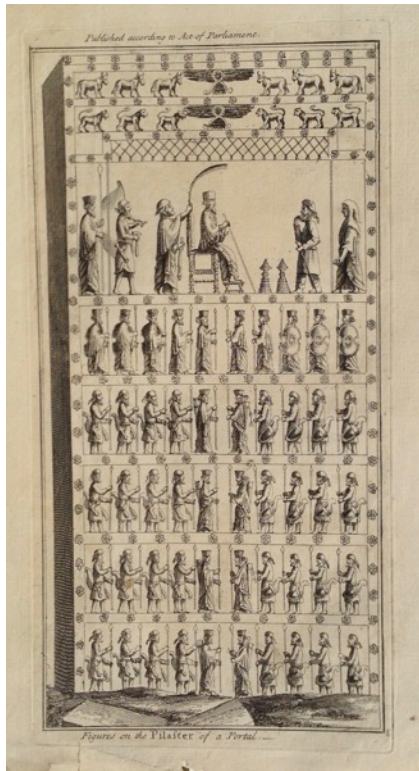 Published according to Act of Parliament.
Figures on the Pilaſter of a Portal.